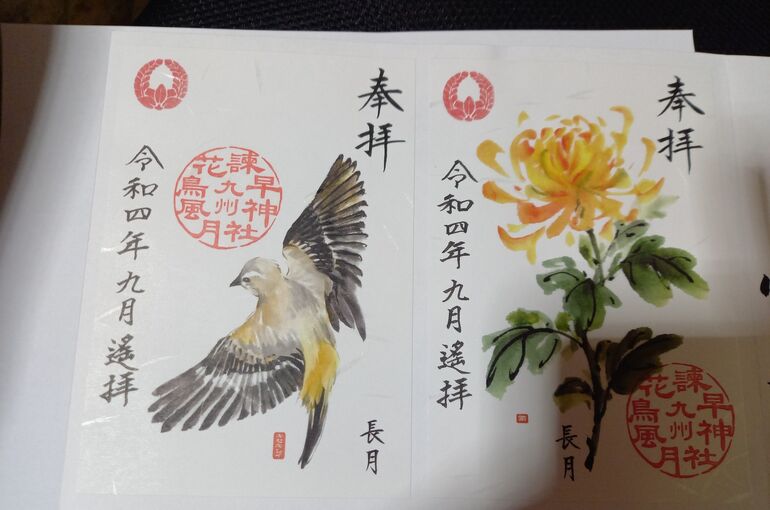 奉拝
諫早神社
九州
花鳥風月
令和四年九月遙拝
長月
奉拝
令和四年九月遙拝
諫早神社
九州
花鳥風月
長月